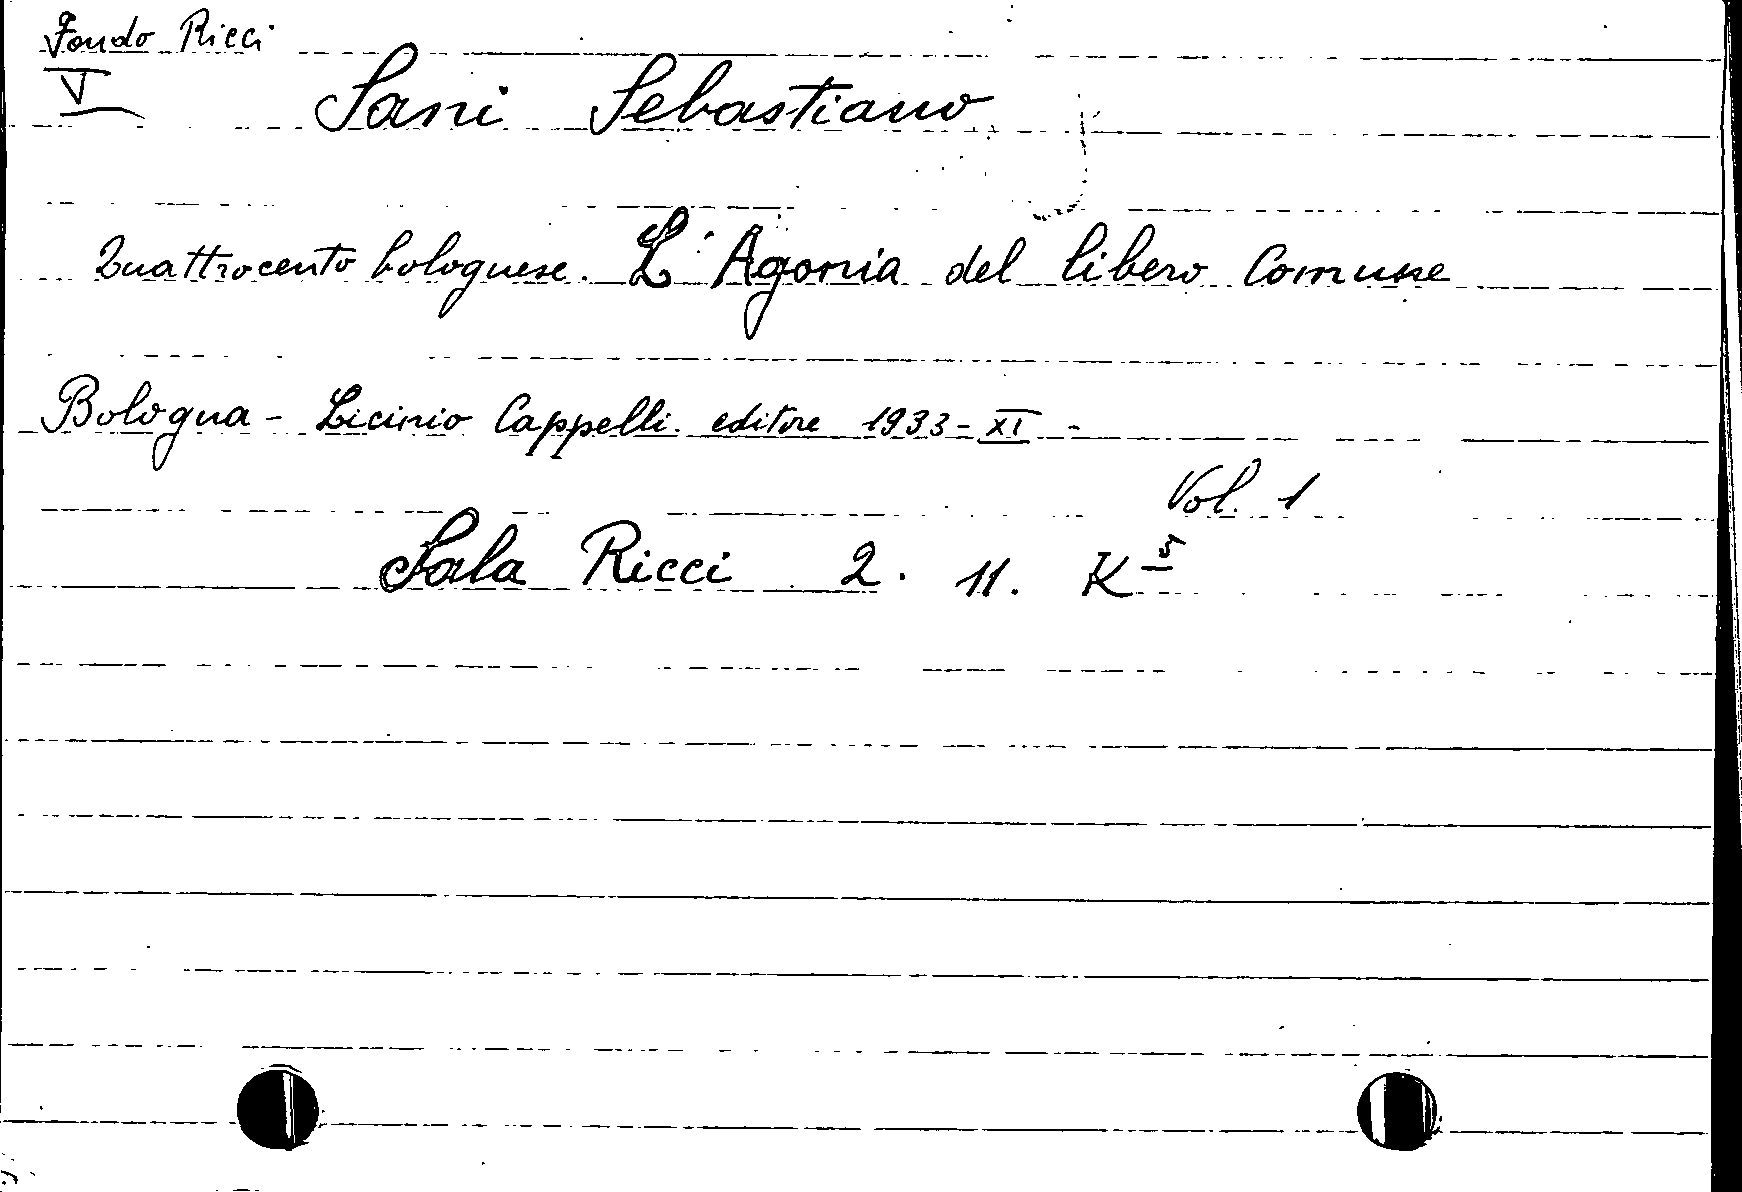 Fondo Ricci
V Sani Sebastiano
Quattrocento bolognese. L'Agonia del libero Comune
Bologna - Licinio Cappelli. editore 1933-XI -
Vol. 1
Sala Ricci 2. 11. K⁵